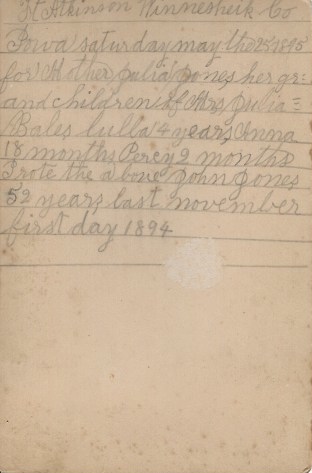 Ft Atkinson Winnesheik Co
Iowa saturday may the 25 1895
for Mother Julia Jones her gr=
and children of Mrs Julia =
Bales lulla 4 years Anna
18 months Percy 2 months
I rote the above John Jones
52 years last november
first day 1894